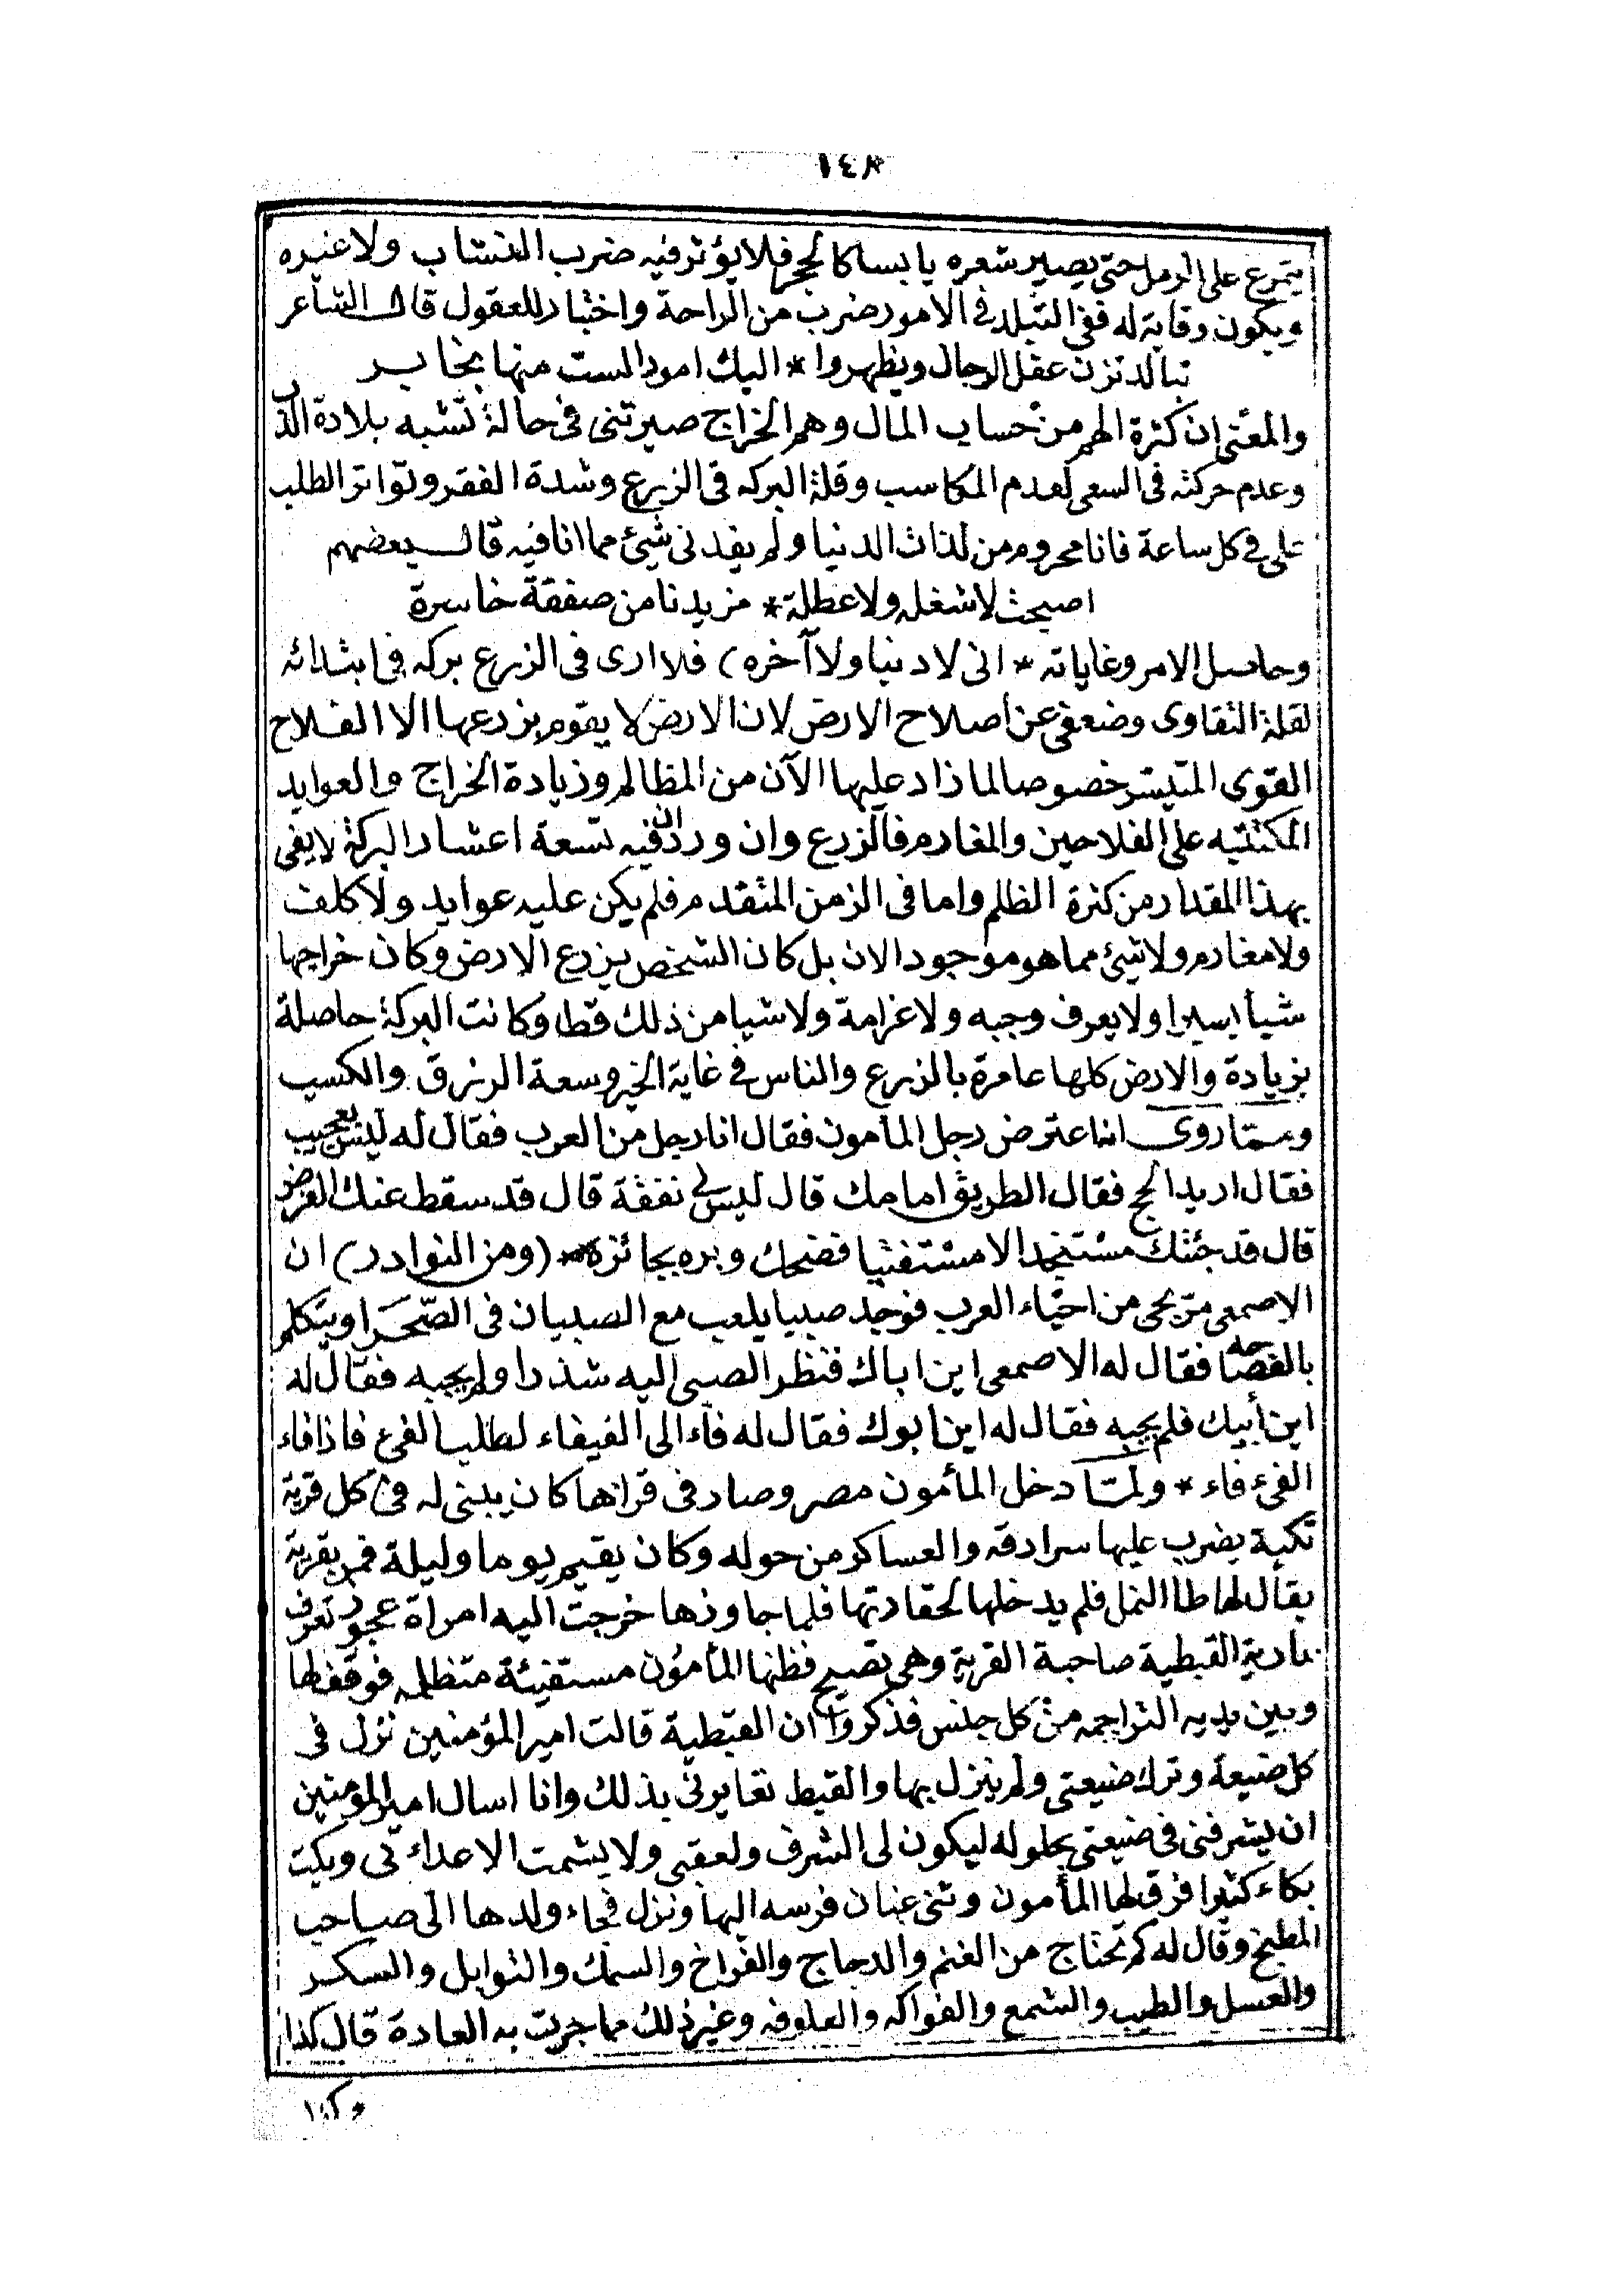 ١٤٨
يتمرغ على الرمل حتى يصير شعره يابسا كالحجر فلا يؤثر فيه ضرب النشاب ولا غيره
ويكون وقاية له ففى التبلد فى الامور ضرب من الراحة واختبار للعقول قال الشاعر
تبالد تزن عقل الرجال ويظهروا * اليك امورا لست منها بخابر
والمعنى ان كثرة الهم من حساب المال وهم الخراج صيرتنى فى حالة تشبه بلادة الدب
وعدم حركته فى السعى لعدم المكاسب وقلة البركه فى الزرع وشدة الفقر وتواتر الطلب
على فى كل ساعة فانا محروم من لذات الدنيا ولم يفدنى شئ مما انا فيه قال بعضهم
اصبحت لا شغل ولا عطلة * مزيدنا من صفقة خاسرة
وحاصل الامر وغاياته * انى لا دنيا ولا آخره) فلا ارى فى الزرع بركه فى ابتدائه
لقلة التقاوى وضعفى عن اصلاح الارض لان الارض لا يقوم بزرعها الا الفلاح
القوى المتيسر خصوصا لما زاد عليها الآن من المظالم وزيادة الخراج والعوايد
المكتتبه على الفلاحين والمغارم فالزرع وان ورد ان فيه تسعة اعشار البركة لا يفى
بهذا المقدار من كثرة الظلم واما فى الزمن المتقدم فلم يكن عليه عوايد ولا كلف
ولا مغارم ولا شئ مما هو موجود الان بل كان الشخص يزرع الارض وكان خراجها
شيأ يسيرا ولا يعرف وجبه ولا غرامة ولا شيا من ذلك قط وكانت البركة حاصلة
بزيادة والارض كلها عامرة بالزرع والناس فى غاية الخير وسعة الرزق والكسب
ومما روى انه اعترض رجل المأمون فقال انا رجل من العرب فقال له ليس بعجيب
فقال اريد الحج فقال الطريق امامك قال ليس لى نفقة قال قد سقط عنك الفرض
قال قد جئتك مستنجدا لا مستفتيا فضحك وبره بجائزة * (ومن النوادر) ان
الاصمعى مر بحى من احياء العرب فوجد صبيا يلعب مع الصبيان فى الصحرا ويتكلم
بالفصاحه فقال له الاصمعى اين اباك فنظر الصبى اليه شذرا ولم يجبه فقال له
اين أبيك فلم يجبه فقال له اين ابوك فقال له فاء الى الفيفاء لطلب الفىء فاذا فاء
الفىء فاء * ولما دخل المأمون مصر وصار فى قراها كان يبنى له فى كل قرية
تكية يضرب عليها سرادقه والعساكر من حوله وكان يقيم يوما وليلة فمر بقرية
يقال لها طا النمل فلم يدخلها لحقارتها فلما جاوزها خرجت اليه امراة عجوز تعرف
بمارية القبطية صاحبة القرية وهى تصيح فظنها المأمون مستغيثة متظلمه فوقف لها
وبين يديه التراجمه من كل جنس فذكروا ان القبطية قالت امير المؤمنين نزل فى
كل ضيعة وترك ضيعتى ولم ينزل بها والقبط تعايرنى بذلك وانا اسال امير المومنين
ان يشرفنى فى ضيعتى بحلوله ليكون لى الشرف ولعقبى ولا يشمت الاعداء بى وبكت
بكاء كثيرا فرق لها المأمون وثنى عنان فرسه اليها ونزل فجاء ولدها الى صاحب
المطبخ وقال له كم تحتاج من الغنم والدجاج والفراخ والسمك والتوابل والسكر
والعسل والطيب والشمع والفواكه والعلوفه وغير ذلك مما جرت به العادة قال كذا
وكذا